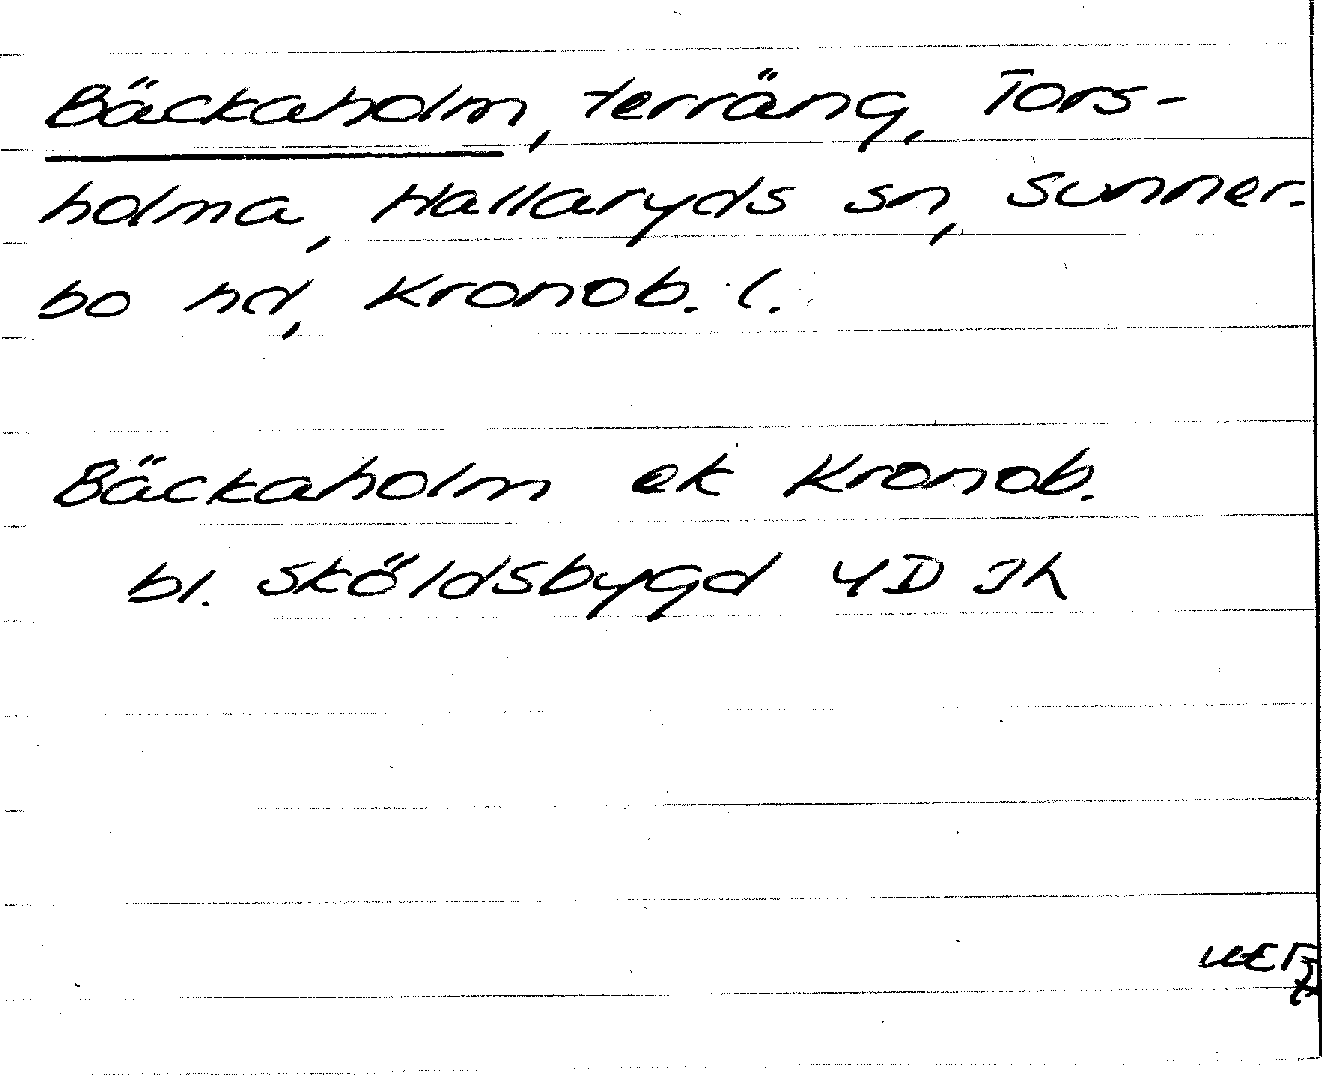 Bäckaholm, terräng, Tors-
holma, Hallaryds sn, Sunner-
bo hd, Kronob. l.
Bäckaholm ek Kronob.
bl. Sköldsbygd 4D Jh